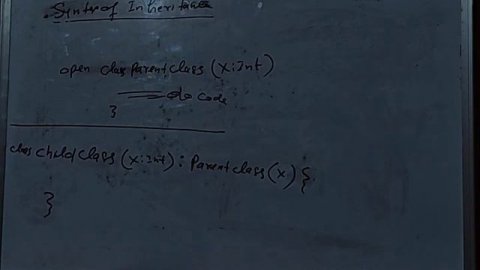 Syntx of Inheritace
open class parent class (x:Int)
do code
}
class child class (x:Int) : parent class (x) {
}